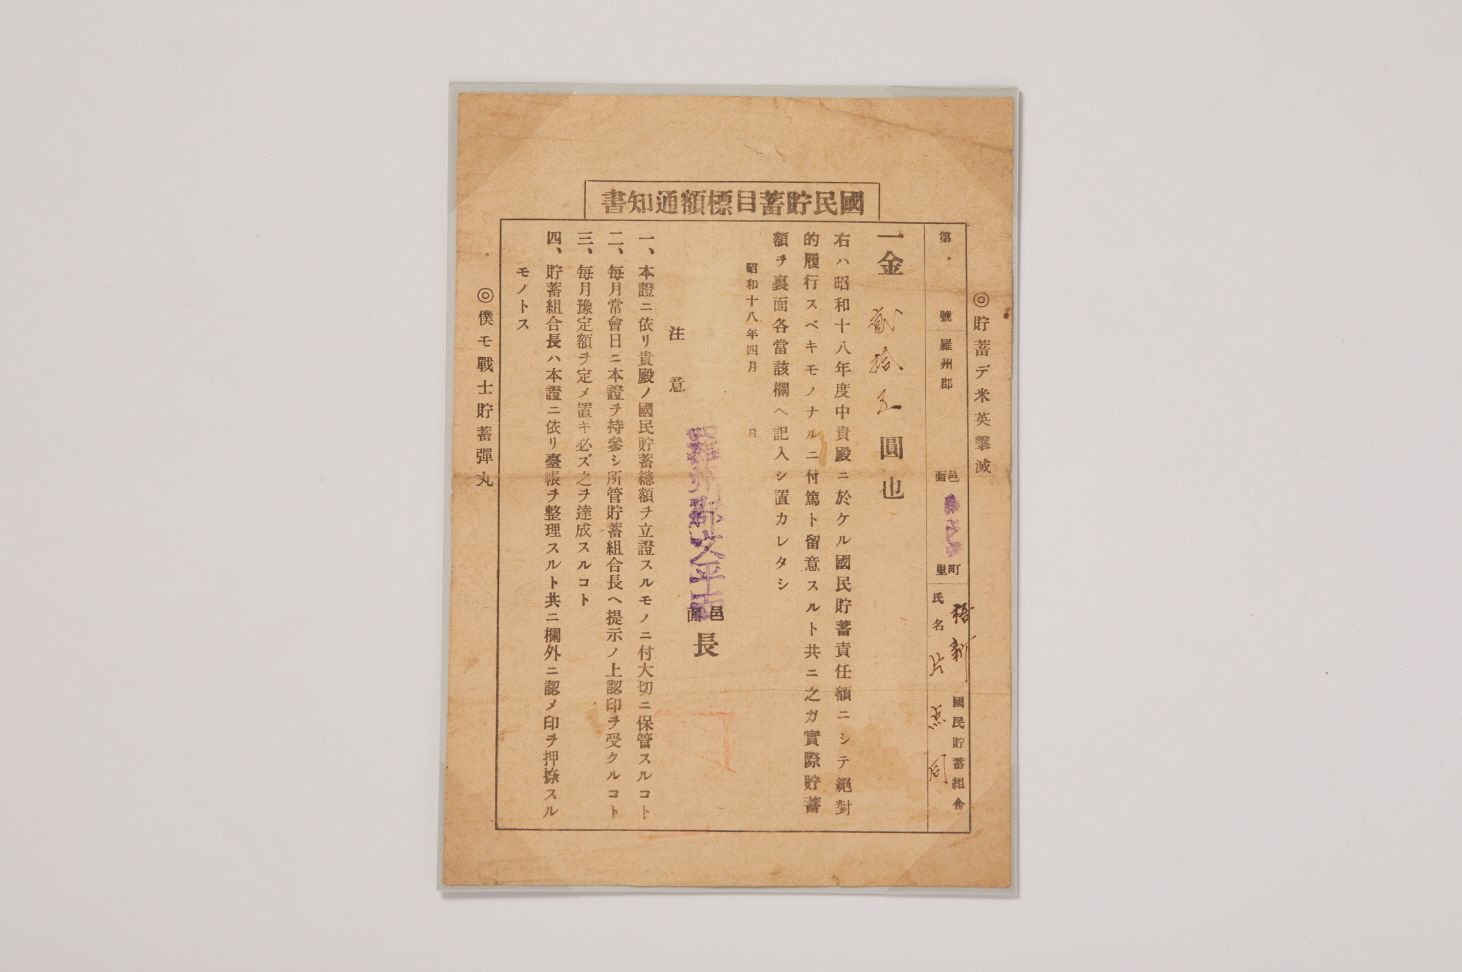 國民貯蓄目標額通知書
◎貯蓄デ米英擊滅
第 號 羅州郡 邑面 町里 氏名 國民貯蓄組合
一金 貳拾五 圓也
右ハ昭和十八年度中貴殿ニ於ケル國民貯蓄責任額ニシテ絕對
的履行スベキモノナルニ付篤ト留意スルト共ニ之ガ實際貯蓄
額ヲ裏面各當該欄ヘ記入シ置カレタシ
昭和十八年四月 日
羅州郡文平面 邑面長
注意
一、本證ニ依リ貴殿ノ國民貯蓄總額ヲ立證スルモノニ付大切ニ保管スルコト
二、每月常會日ニ本證ヲ持參シ所管貯蓄組合長ヘ提示ノ上認印ヲ受クルコト
三、每月豫定額ヲ定メ置キ必ズ之ヲ達成スルコト
四、貯蓄組合長ハ本證ニ依リ臺帳ヲ整理スルト共ニ欄外ニ認メ印ヲ押捺スル
モノトス
◎僕モ戰士貯蓄彈丸